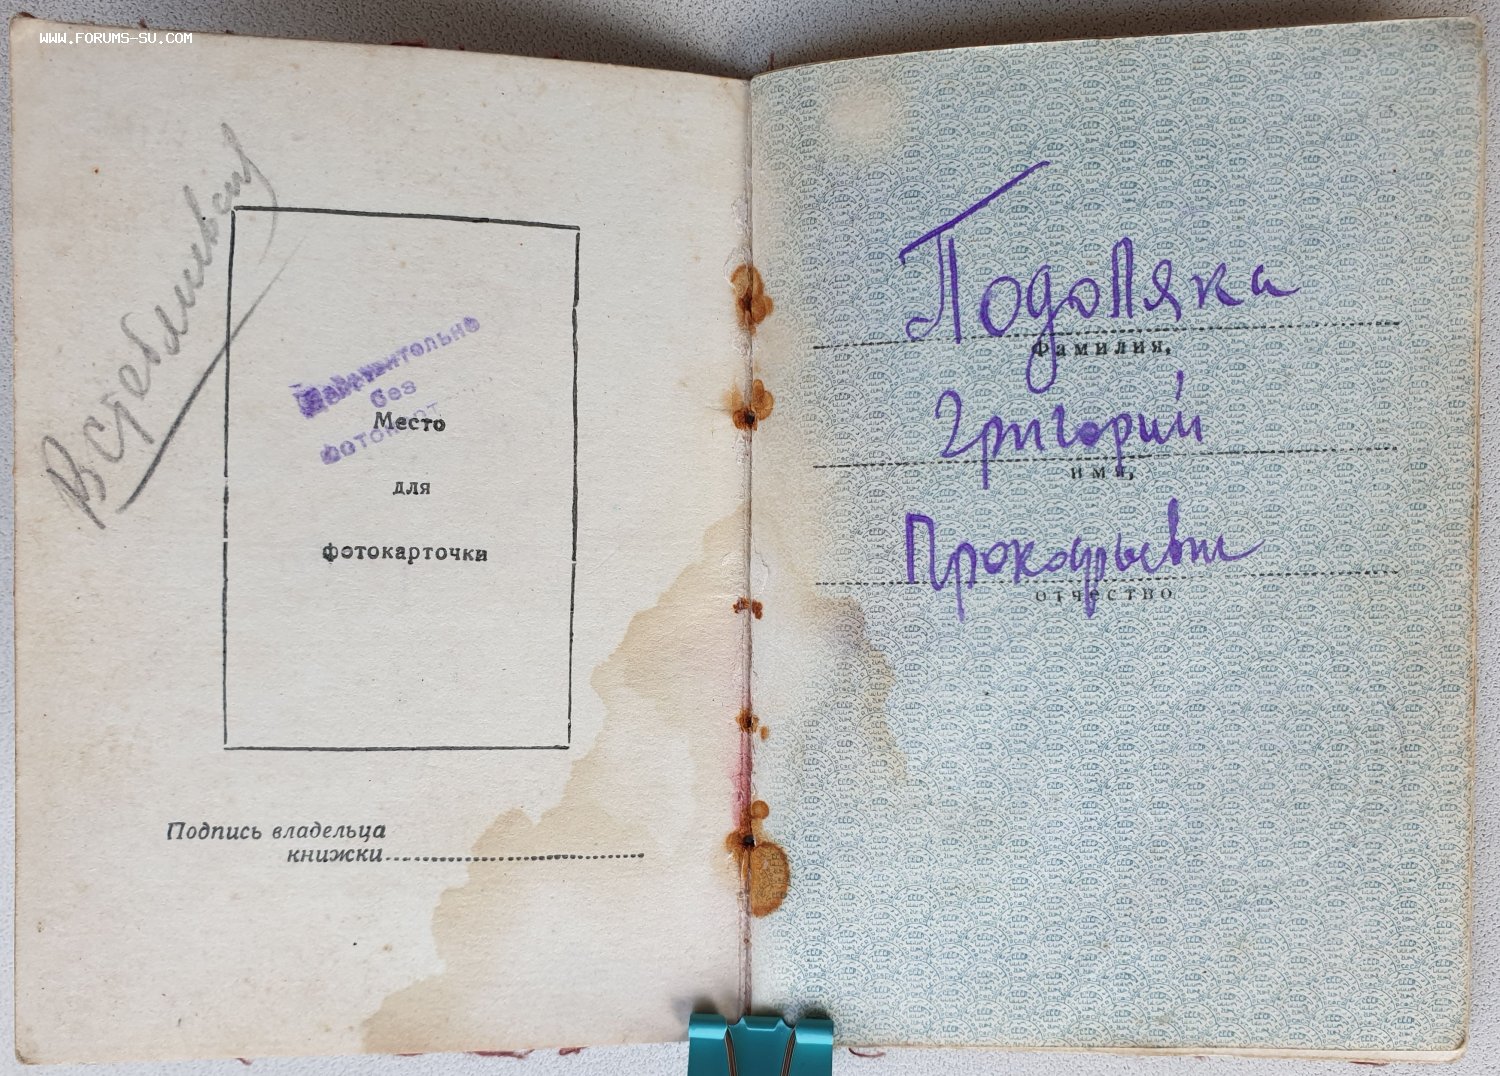 WWW.FORUMS-SU.COM
Действительно
без
Место
для
фотокарточки
Подпись владельца
книжки
Подоляка
Фамилия,
Григорий
имя,
Прокофьевич
отчество